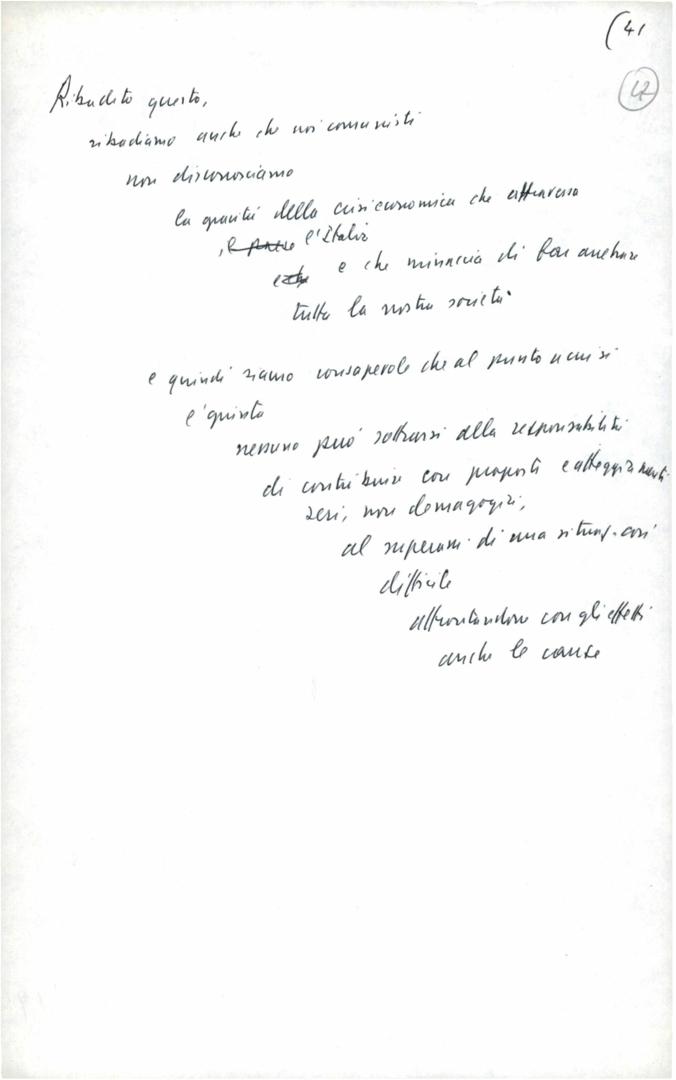 (41
42
Ribadito questo,
ribadiamo anche che noi comunisti
non disconosciamo
la gravità della crisi economica che attraversa
il paese l'Italia
e che e che minaccia di far
tutta la nostra società
e quindi siamo consapevole che al punto a cui si
è giunto
nessuno può sottrarsi alla responsabilità
di contribuire con proposti e atteggiamenti
seri, non demagogizi,
al superam. di una situaz. così
difficile
affrontandone con gli effetti
anche le cause